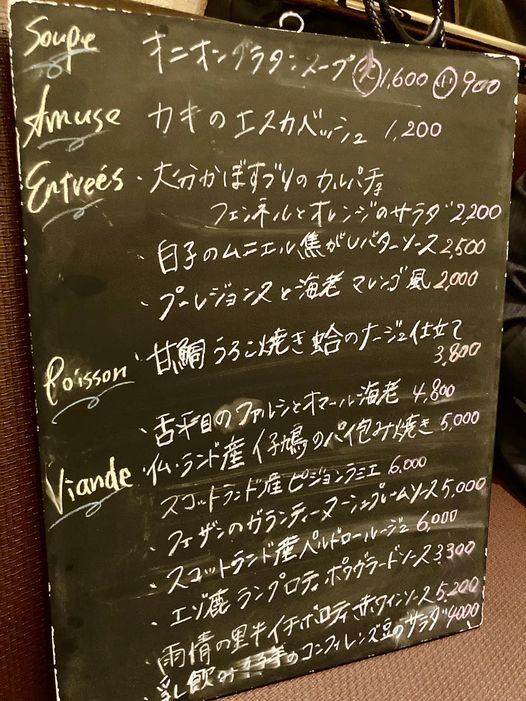 Soupe オニオングラタンスープ 大 1,600 小 900
Amuse カキのエスカベッシュ 1,200
Entreés ・大分かぼすぶりのカルパチョ
フェンネルとオレンジのサラダ 2,200
・白子のムニエル焦がしバターソース 2,500
・プーレジョーヌと海老 マレンゴ風 2,000
Poisson ・甘鯛うろこ焼き蛤のナージュ仕立て
3,800
・舌平目のファルシとオマール海老 4,800
Viande ・仏・ランド産仔鳩のパイ包み焼き 5,000
スコットランド産ピジョンラミエ 6,000
・フェザンのガランティーヌ シュプレームソース 5,000
・スコットランド産ペルドロールージュ 6,000
・エゾ鹿ランプロティポワヴラードソース 3,300
・雨情の里牛イチボロティ赤ワインソース 5,200
・乳飲み のコンフィレンズ豆のサラダ 4000